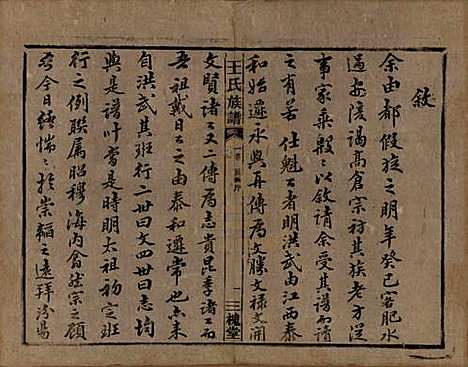 敘
余由都假旋之明年癸巳客肥水
過安陵謁高倉宗祠其族老方從
事家乘殷々以敘請余受其譜而讀
之有若仕魁公者明洪武由江西泰
和始遷永興再傳為文勝文祿文開
王氏族譜
一卷
一
三槐堂
文賢諸公又二傳為志貴昆季諸公而
吾祖戴日公之由泰和遷常也亦來
自洪武其班行二世曰文四世曰志均
與是譜叶當是時明太祖初定班
行之例聯屬昭穆海內翕然宗之顧
至今日繞惴々於崇韜之遠拜汾陽